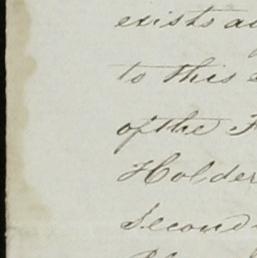 exists
to this
of the
Holder
Second